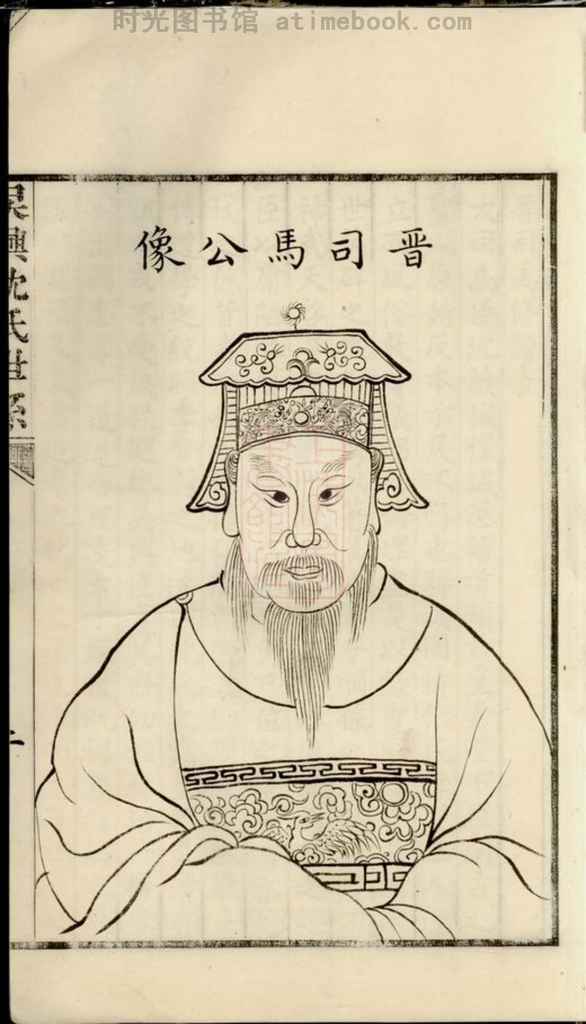 时光图书馆 - atimebook.com
晋司馬公像
吳興沈氏世系
二